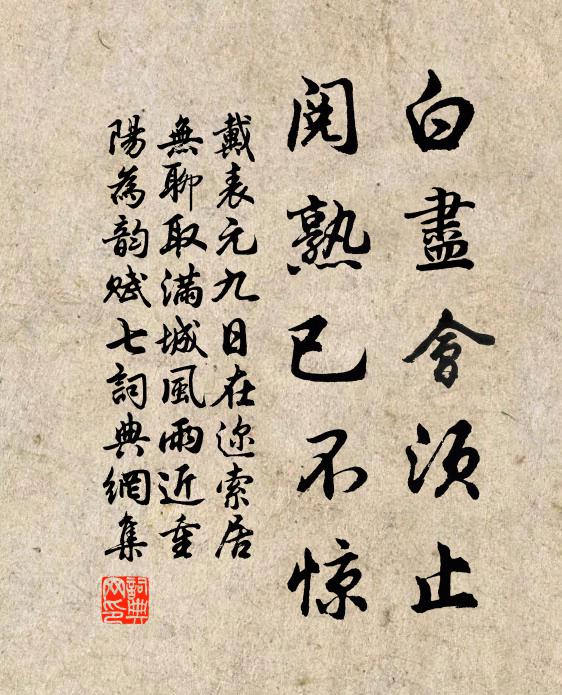 白盡會須止
閱熟已不惊
戴表元九日在迩索居
無聊取滿城風雨近重
陽為韵赋七詞典網集
詞典
网印